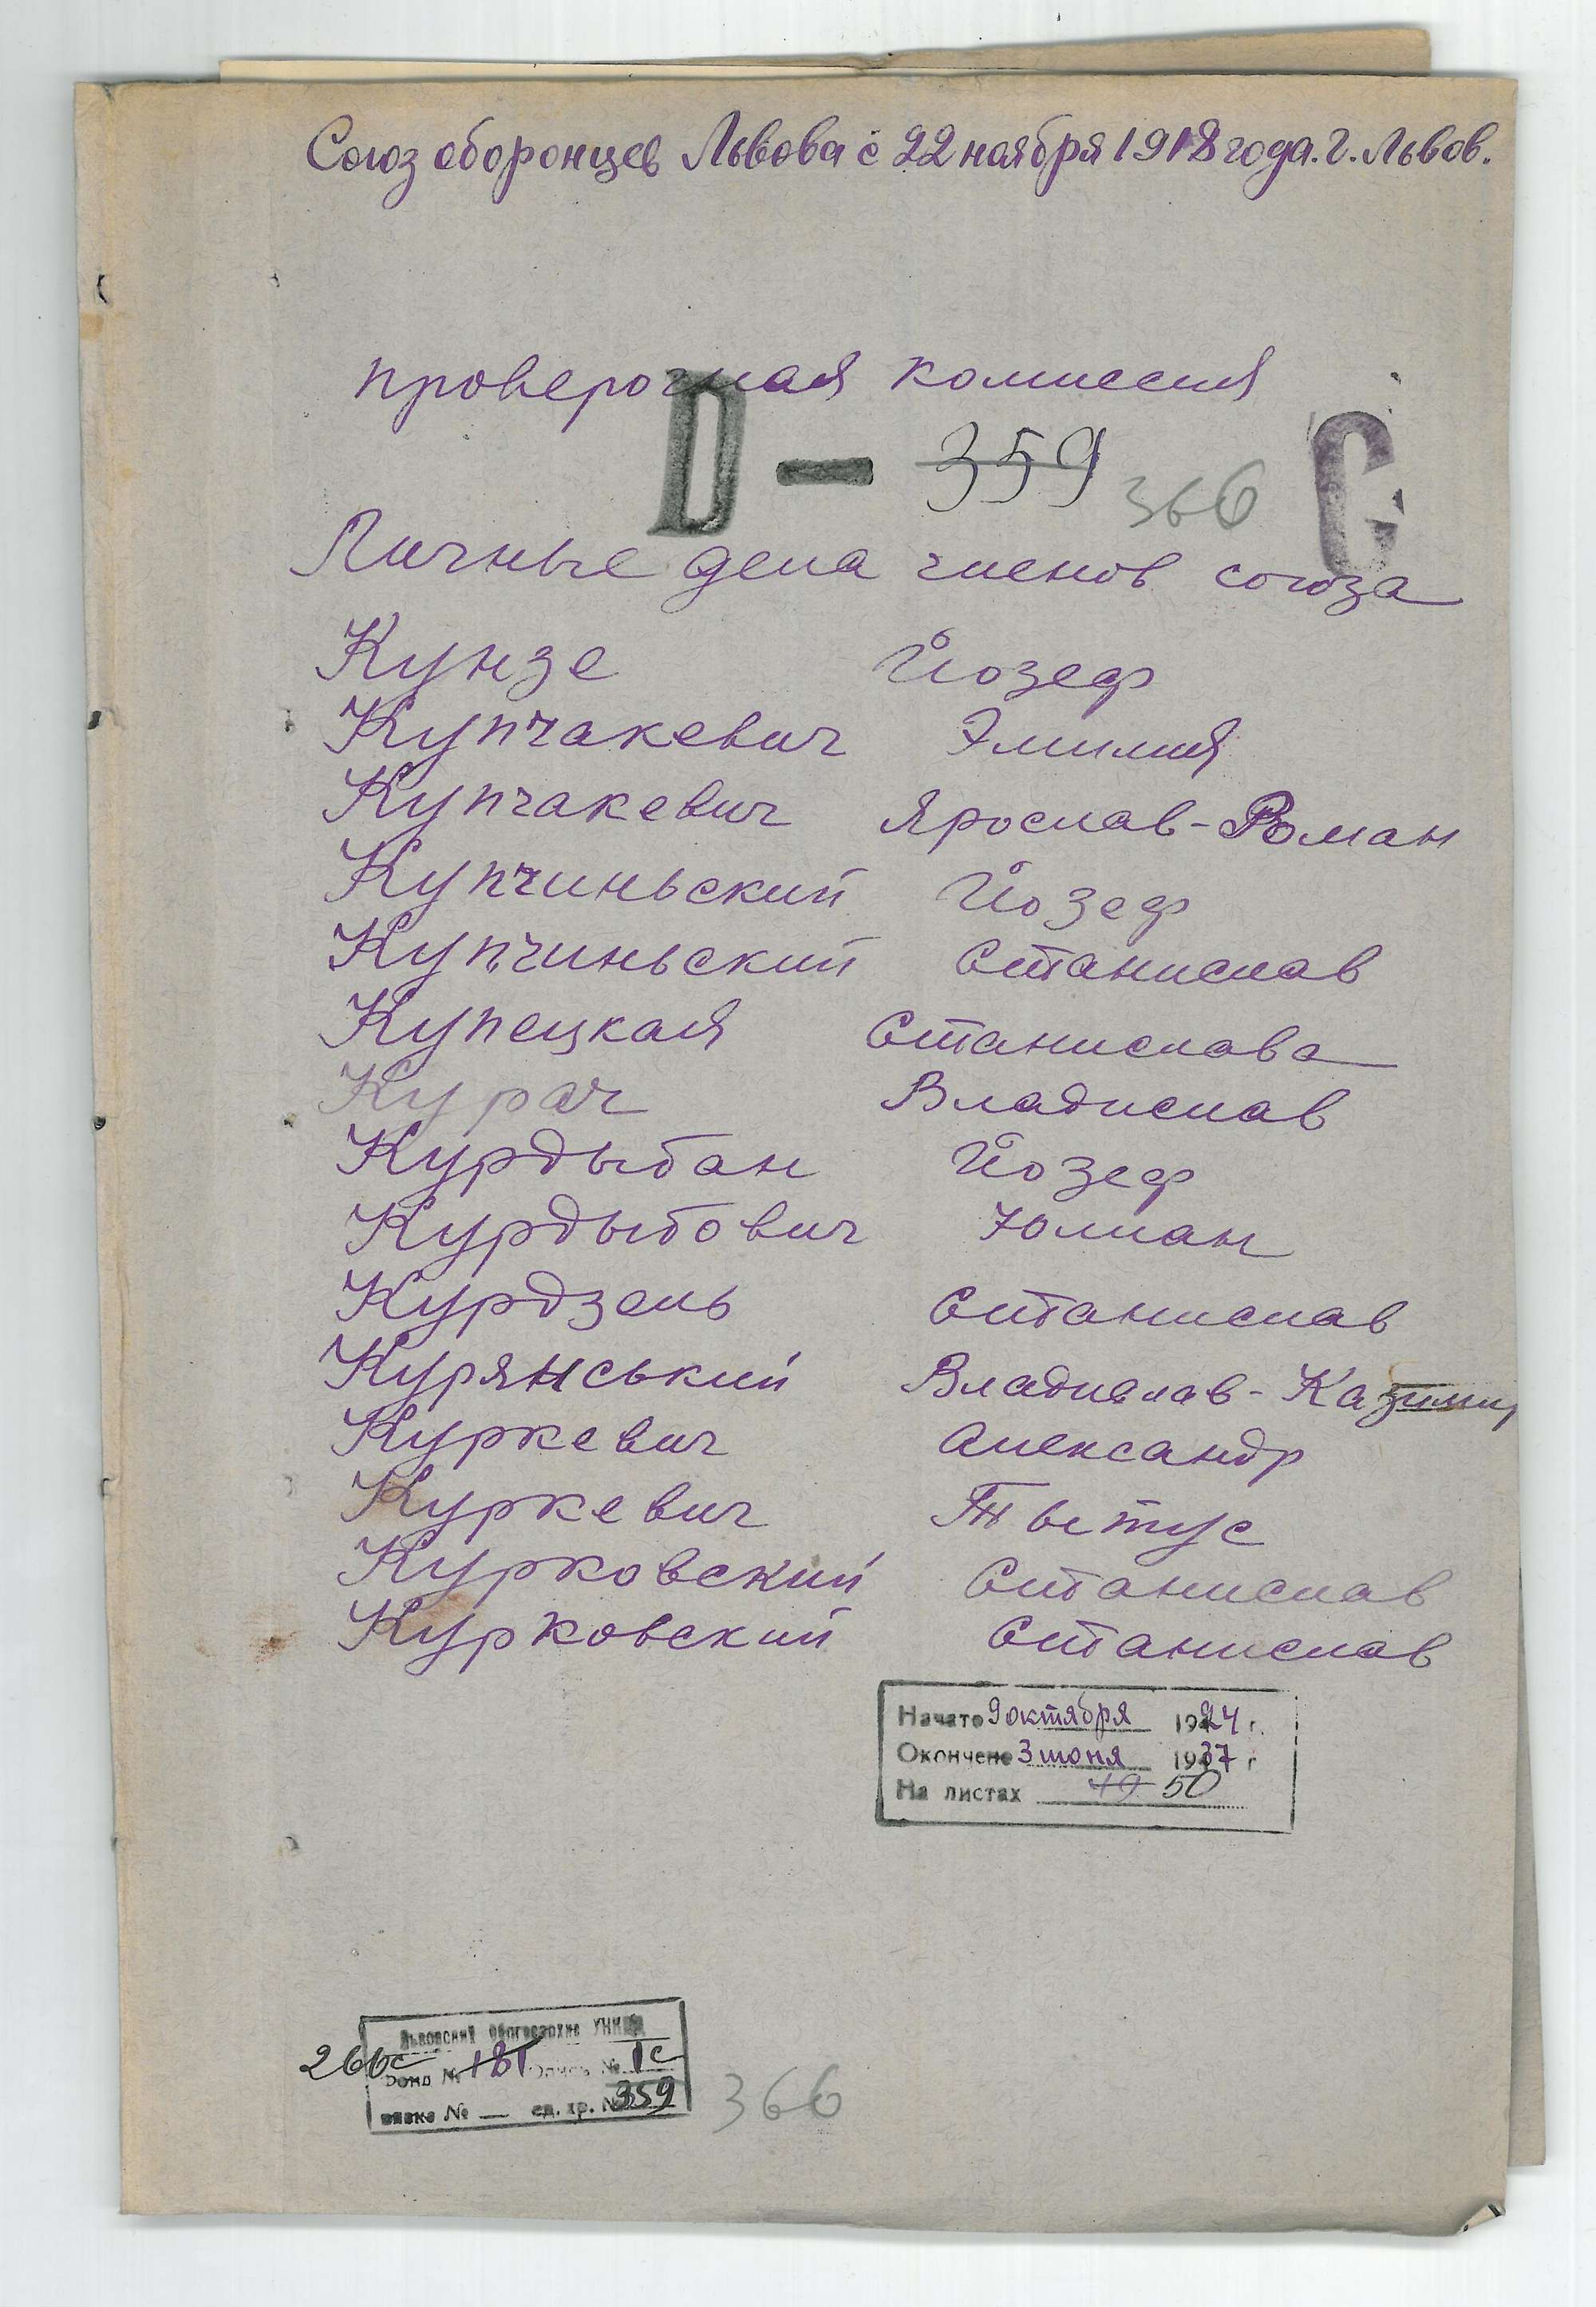 Союз оборонцев Львова с 22 ноября 1918 года. г. Львов.
проверочная комиссия
D — 359 366 С
Личные дела членов союза
Кунзе Йозеф
Купчакевич Эмилия
Купчакевич Ярослав-Роман
Купчиньский Йозеф
Купчиньский Станислав
Купецкая Станислава
Курач Владислав
Курдыбан Йозеф
Курдыбович Юлиан
Курдзель Станислав
Курянський Владислав-Казимир
Куркевич Александр
Куркевич Тытус
Курковский Станислав
Курковский Станислав
Начато 9 октября 1924 г.
Окончено 3 июня 1937 г
На листах 49 50
Львовский Облгосархив УНКВД
266с Фонд № 181 Опись № 1с
вязка № — ед. хр. № 359 366